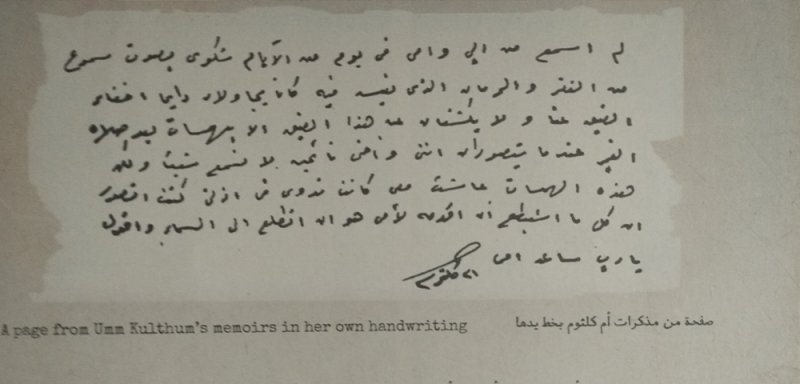 لم اسمع من ابى وامى فى يوم من الأيام شكوى بصوت مسموع
من الفقر والحرمان الذى نعيش فيه كانا يحاولان دايما اخفاء
الضيق عنا و لا يكشفان عن هذا الضيق الا بهمسات بعد صلاه
الفجر عندما يتصوران اننى واخى نائمين لا نسمع شيئا ولكن
هذه الهمسات عاشت معى كانت تدوى فى اذنى كنت اتصور
ان كل ما استطيع ان اقدمه لأمى هو ان اتطلع الى السماء واقول
يارب ساعد امى
ام كلثوم
A page from Umm Kulthum's memoirs in her own handwriting
صفحة من مذكرات أم كلثوم بخط يدها